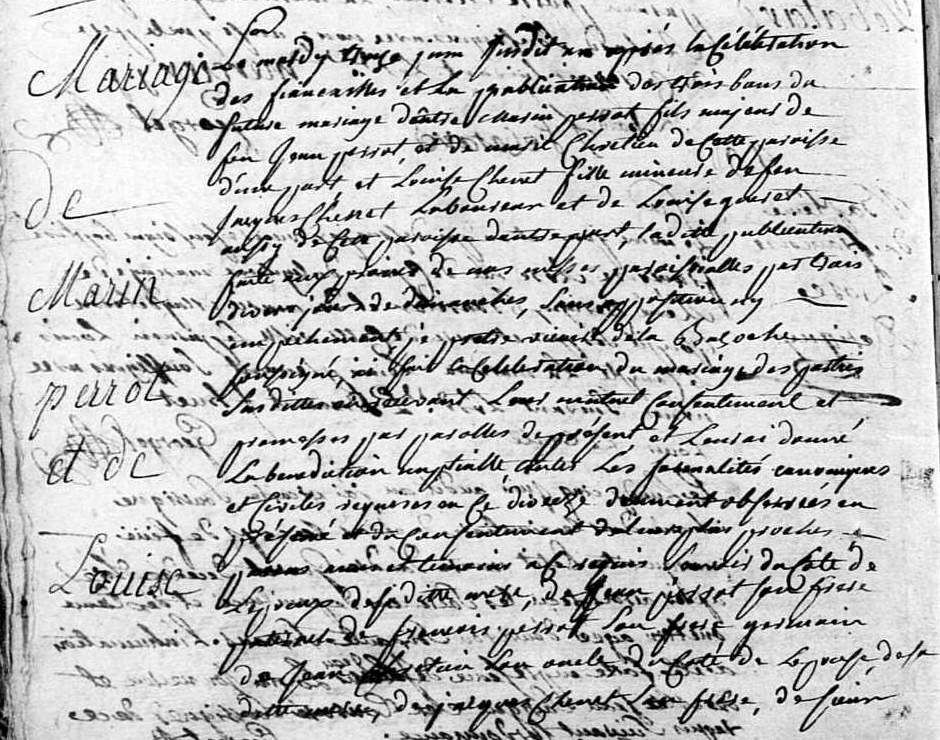 Mariage
de
Marin
perrot
et de
Louise
Ce mardy treze juin susdit an après la Célébration
des fiancailles et la publication des trois bans du
futur mariage d'entre Marin perrot fils majeur de
feu Jean perrot, et de marie Chrétien de Cette paroisse
d'une part et Louise Chenet fille mineure de feu
Jacques Chenet Laboureur et de Louise
aussy de Cette paroisse d'autre part, la ditte publication
faite aux prones de nos messes paroissialles par trois
divers jours de dimanches, sans opposition ny
empéchement, je pretre vicaire de la Bazoche
soussigné, ai fait la Celebration du mariage des parties
susdittes et recevant Leur mutuel Consentement et
promesses par parolles de présent et Leur ai donné
La benediction nuptialle toutes Les formalités canoniques
et Civiles requises en Ce diocèze duement observées en
présence et du Consentement de leurs plus proches
parens amis et temoins a Ce requis Sçavoir du Coté de
L'epoux de sa ditte mere, de Jean perrot son frere
paternel de francois perrot son frere germain
de Jean Chretien son oncle, du Coté de L'epouse, de sa
ditte mere de jacques Chenet son frere, de